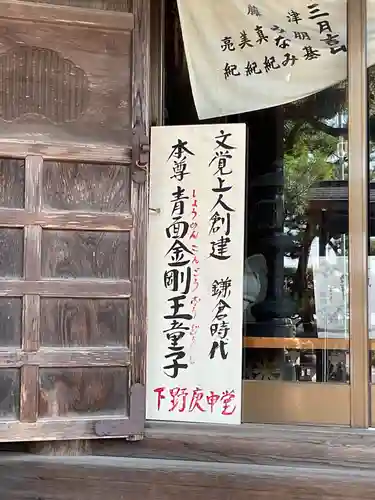 三月吉
なみ
真紀
美紀
亮紀
文覚上人創建 鎌倉時代
しょうめんこんごうおうどうじ
本尊 青面金剛王童子
下野庚申堂